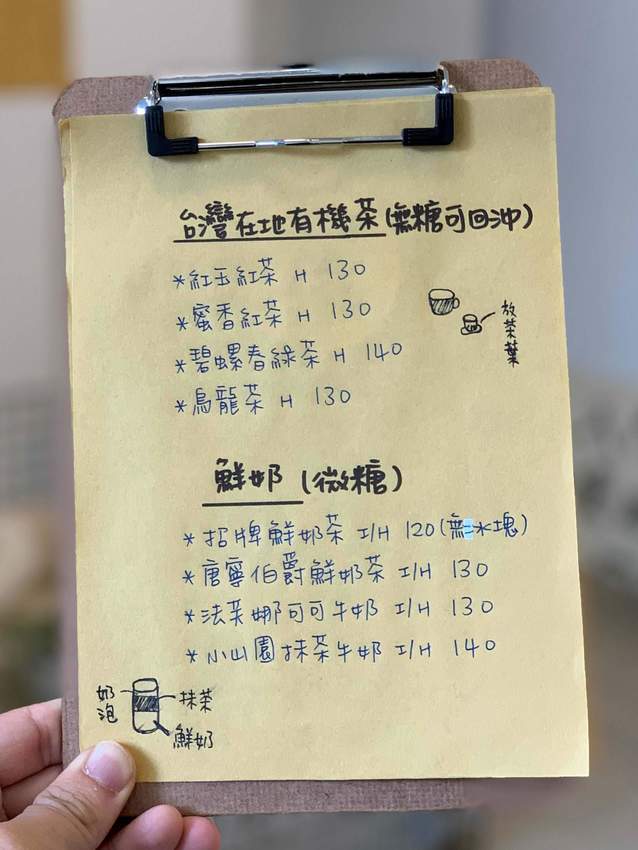 台灣在地有機茶(無糖可回沖)
*紅玉紅茶 H 130
*蜜香紅茶 H 130
*碧螺春綠茶 H 140
*烏龍茶 H 130
放茶葉
鮮奶(微糖)
*招牌鮮奶茶 I/H 120(無冰塊)
*唐寧伯爵鮮奶茶 I/H 130
*法芙娜可可牛奶 I/H 130
*小山園抹茶牛奶 I/H 140
奶泡
抹茶
鮮奶